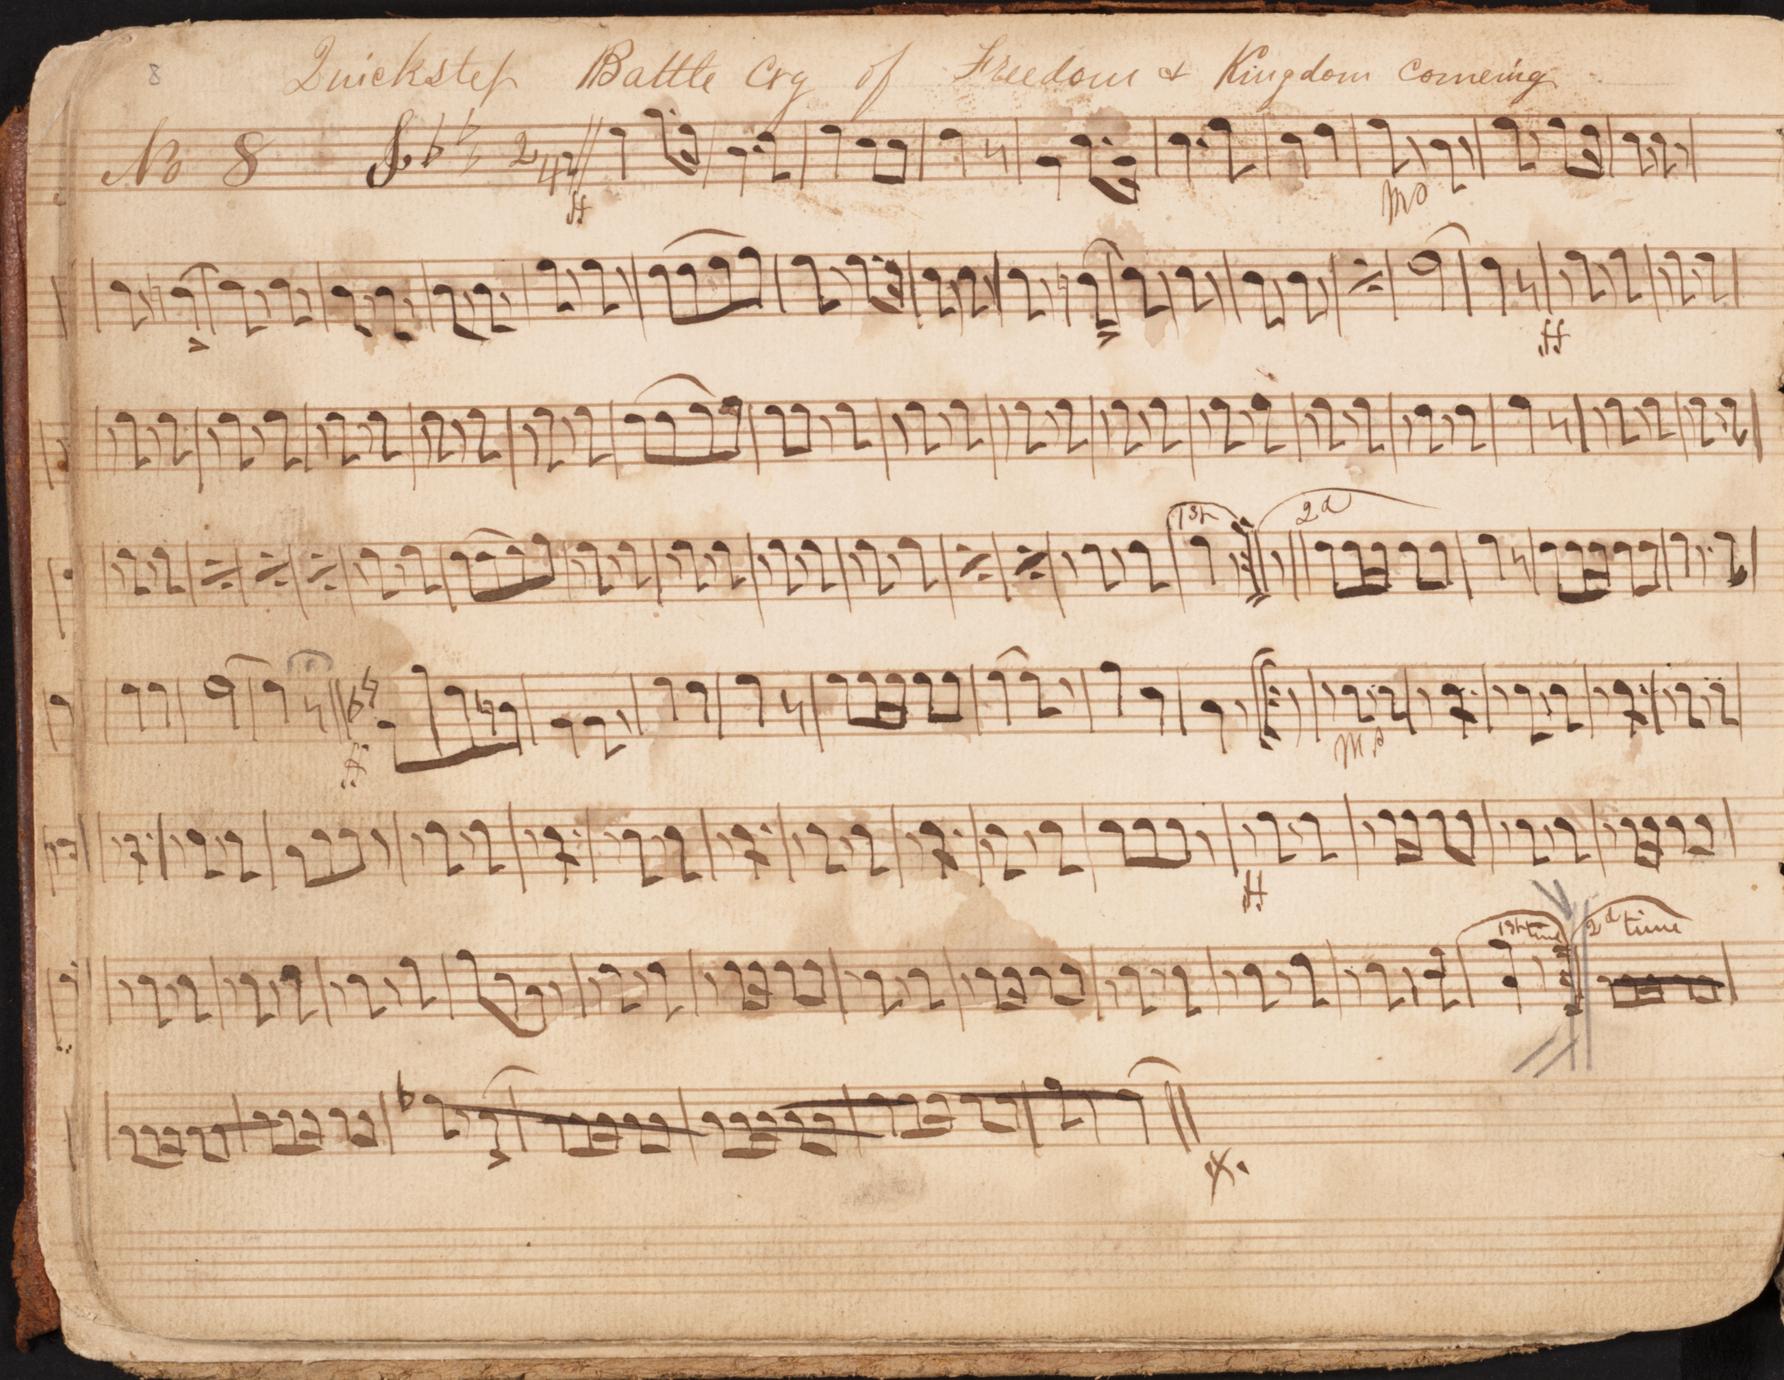 8
Quickstep Battle Cry of Freedom & Kingdom comeing
No 8 2 4 ff mp
ff
1st 2d
ff mp
ff
1st time 2d time